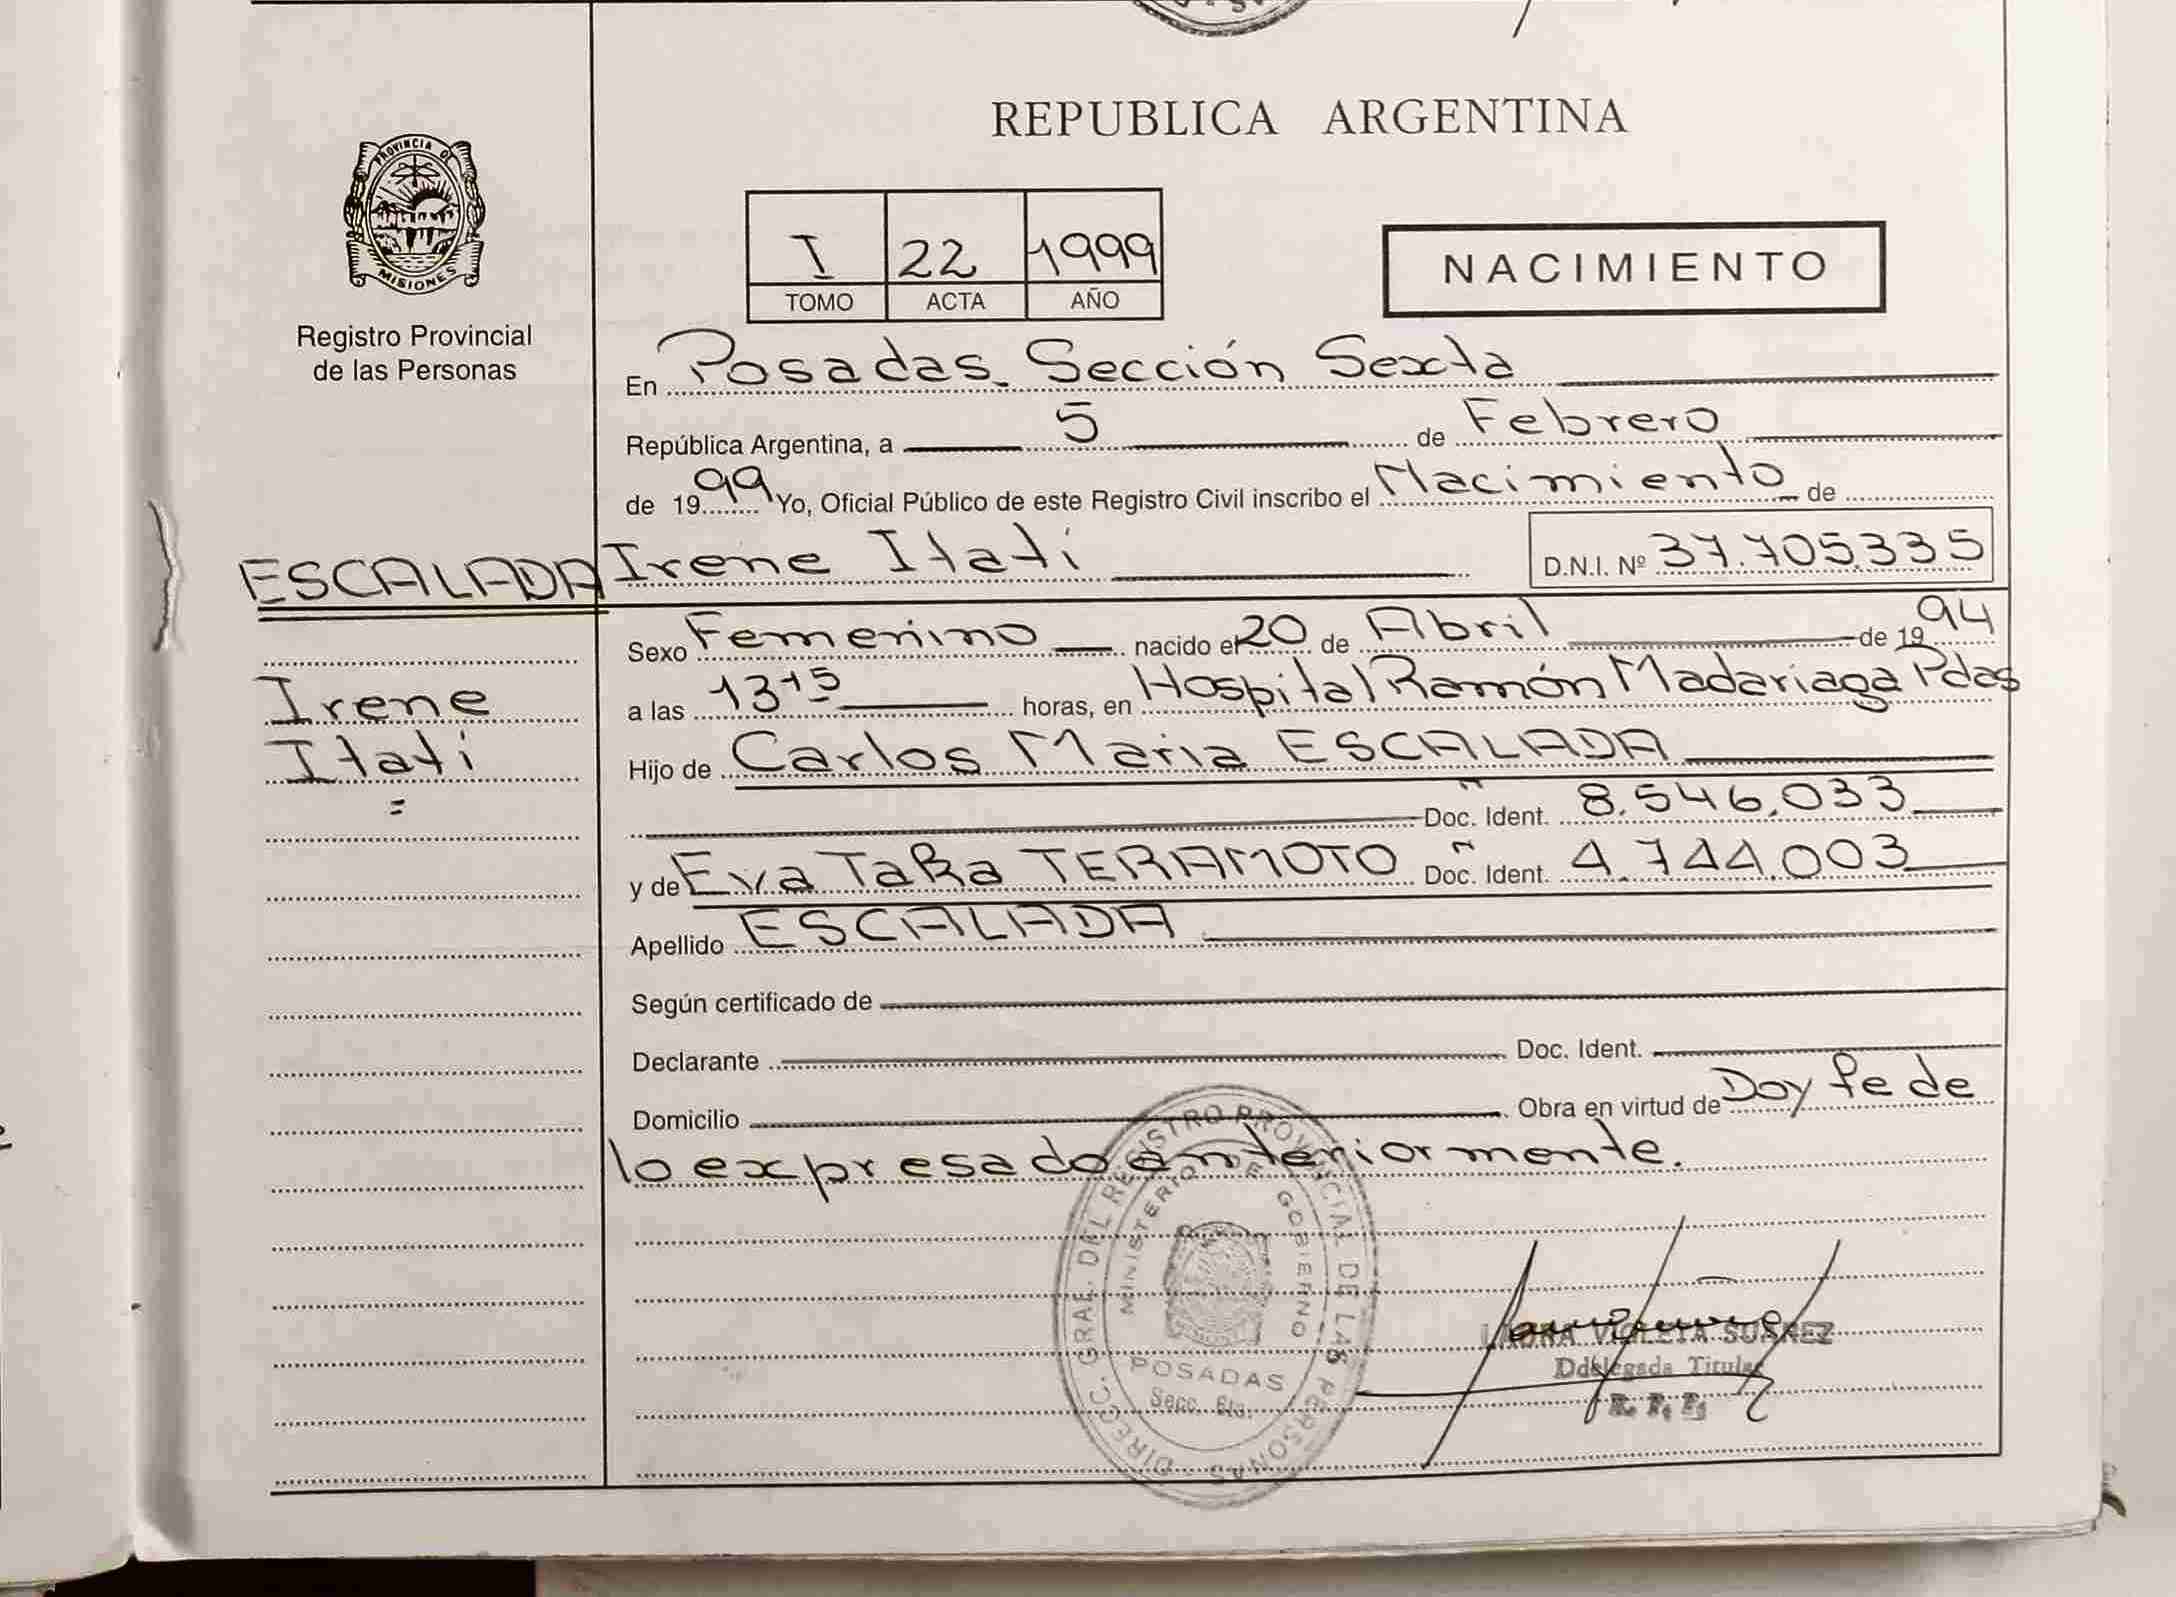 REPUBLICA ARGENTINA
PROVINCIA DE
MISIONES
Registro Provincial
de las Personas
I 22 1999
TOMO ACTA AÑO
NACIMIENTO
En Posadas. Sección Sexta
República Argentina, a 5 de Febrero
de 1999 Yo, Oficial Público de este Registro Civil inscribo el Nacimiento de
ESCALADA Irene Itatí D.N.I. Nº 37.705.335
Sexo Femenino nacido el 20 de Abril de 1994
Irene
Itatí
=
a las 13 15 horas, en Hospital Ramón Madariaga Pdas
Hijo de Carlos Maria ESCALADA
Doc. Ident. 8.546.033
y de Eva TERAMOTO Doc. Ident. 4.744.003
Apellido ESCALADA
Según certificado de
Declarante Doc. Ident.
Domicilio Obra en virtud de Doy fe de
lo expresado anteriormente.
DIRECC. GRAL. DEL REGISTRO PROVINCIAL DE LAS PERSONAS
MINISTERIO DE GOBIERNO
POSADAS
Secc. 6ta.
VIOLETA SUAREZ
Titular